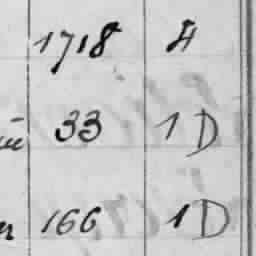 1718 H
33 1 D
166 1 D